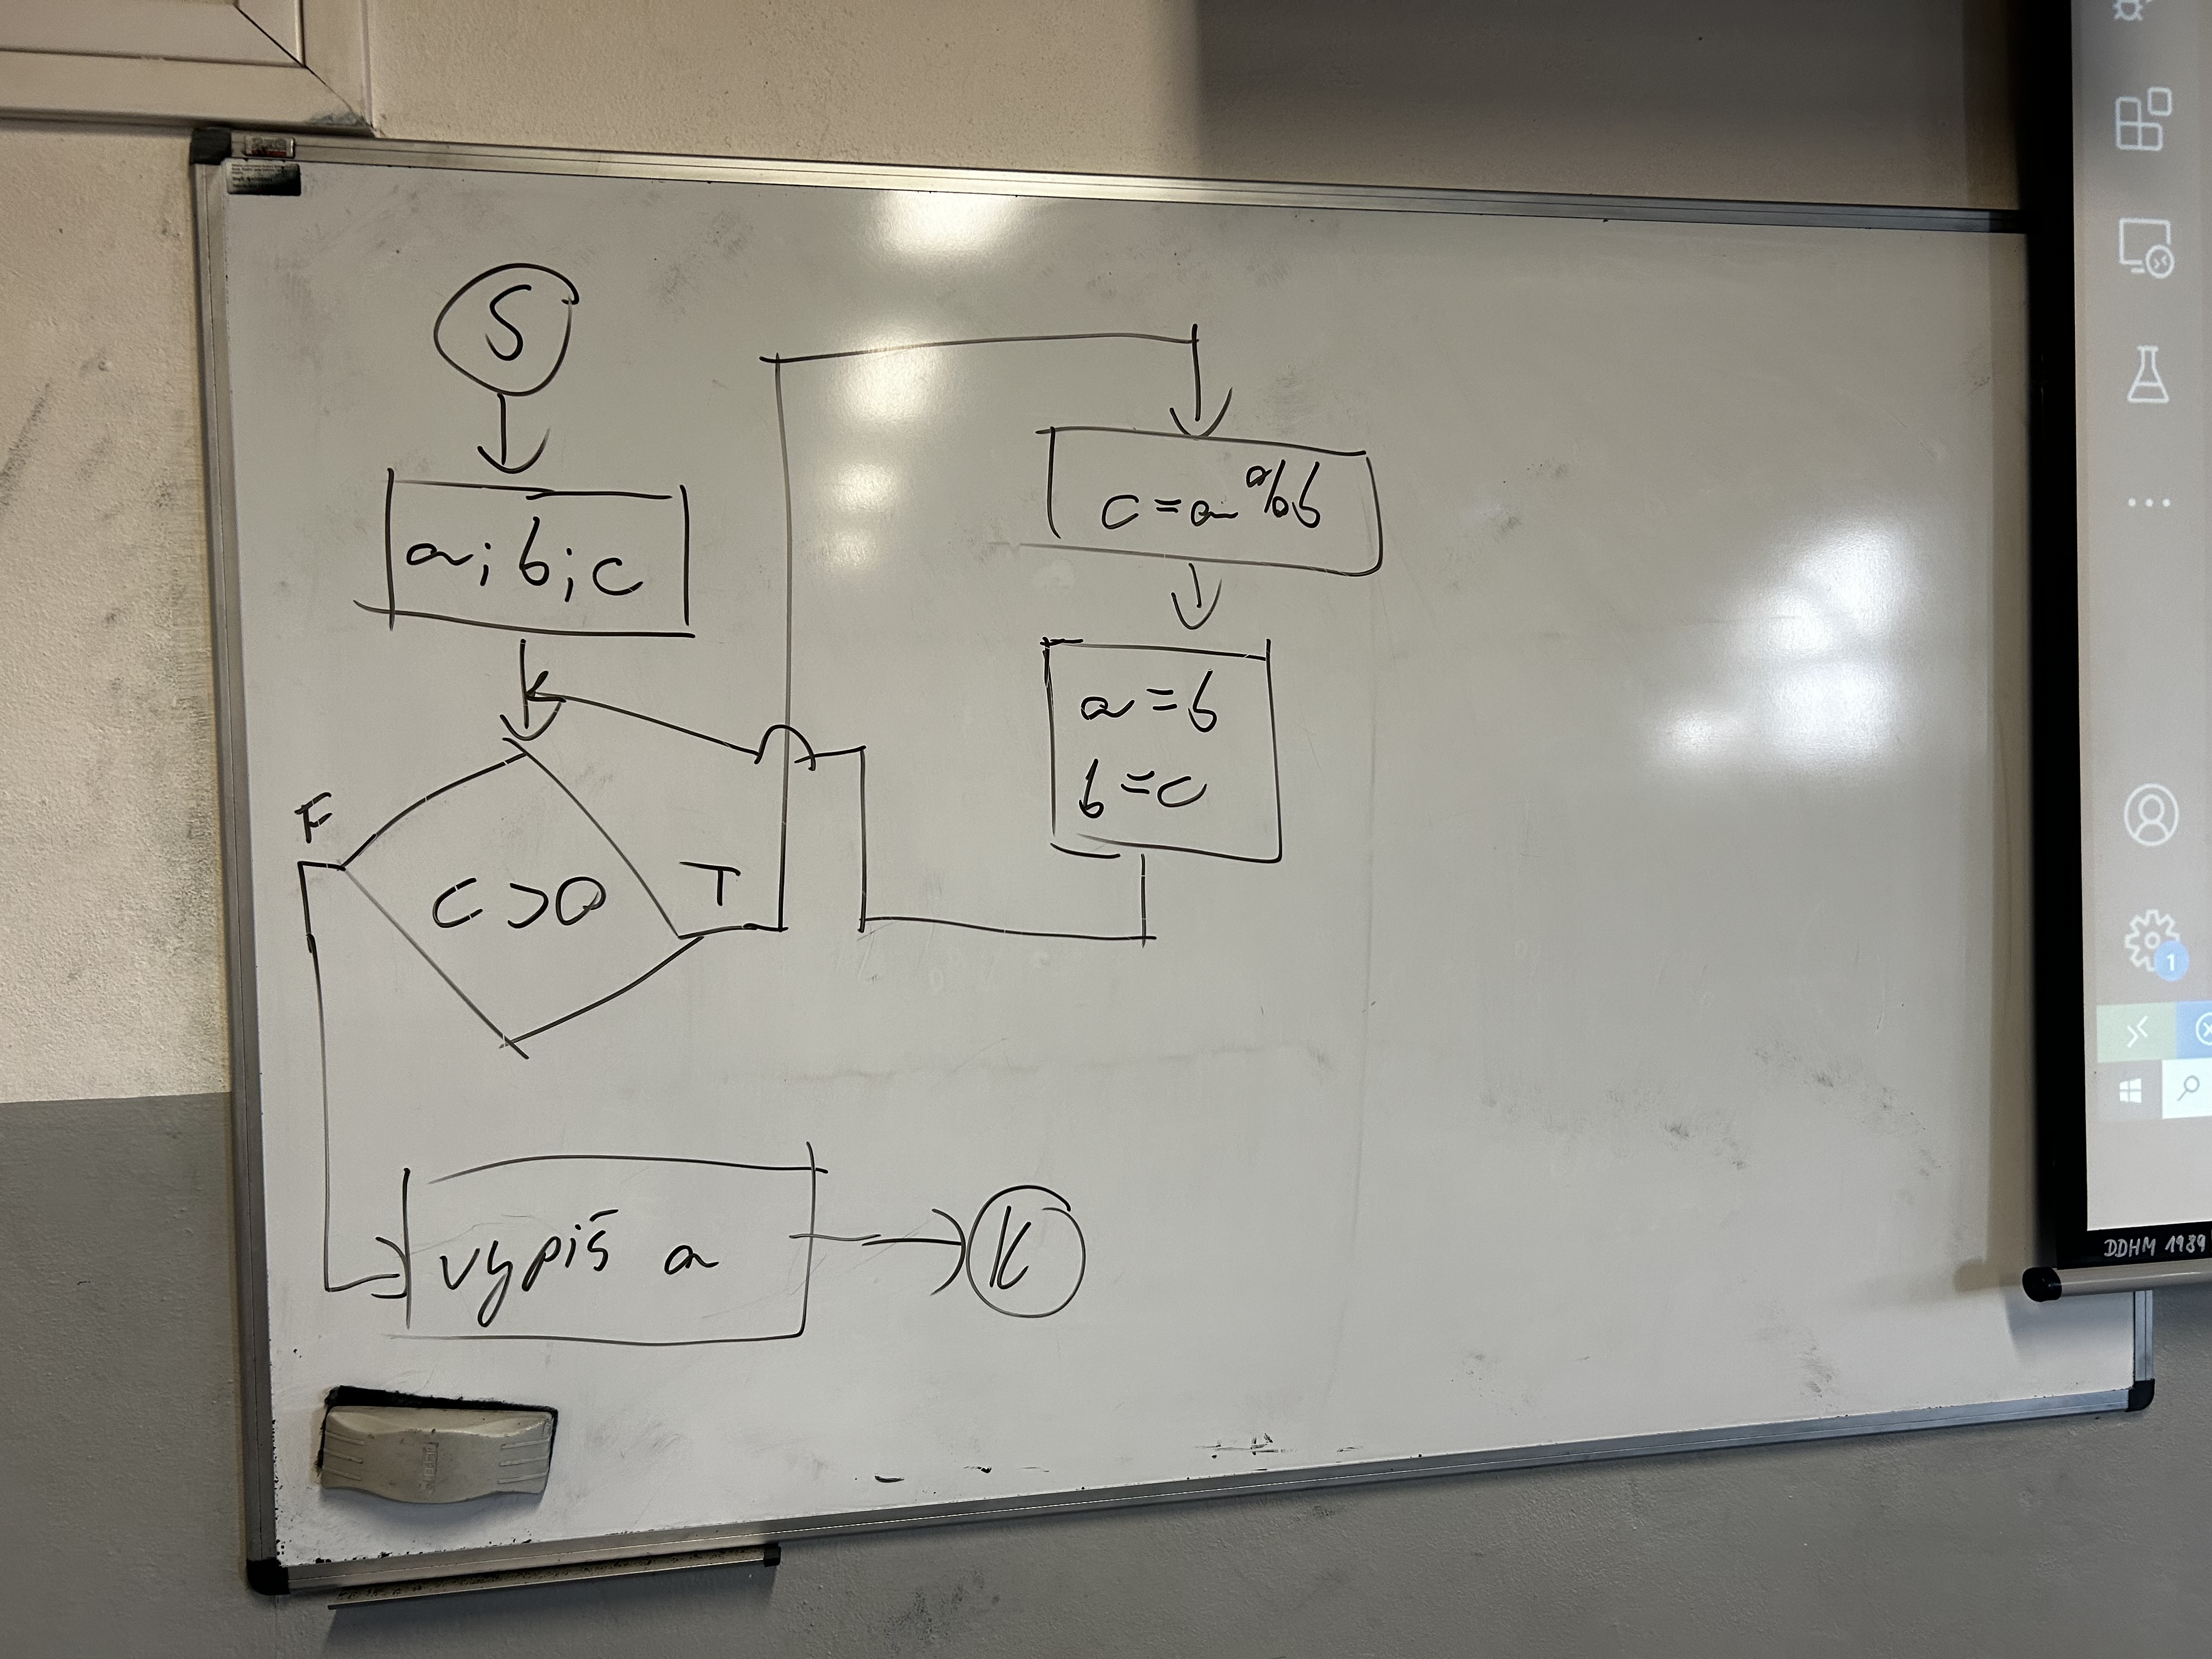 S
a; b; c
F
c > 0
T
c = a % b
a = b
b = c
vypiš a
K
1
DDHM 1989